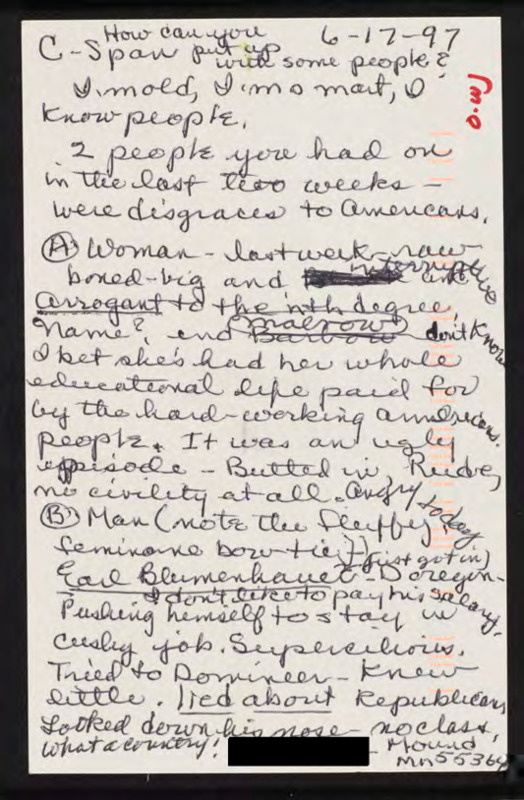 How can you 6-17-97
C-Span put up
with some people?
I'm old, I'm smart, I
know people.
O.W.
2 people you had on
in the last two weeks -
were disgraces to Americans.
(A) Woman - last week - raw
boned-big and interruptive and
arrogant to the nth degree.
Name? end Barbow don't know
I bet she's had her whole
educational life paid for
by the hard-working americans.
people. It was an ugly
eppisode - Butted in, Rude,
no civility at all. angry today
(B) Man (note the fluffy
feminine bow-tie!) (just got in)
Earl Blumenhauer - D oregon -
I don't like to pay his salary.
Pushing himself to stay in
cushy job. Supercilious.
Tried to Domineer - Knew
little. lied about Republicans
Looked down his nose - no class,
What a country! - Mound
MN 55364